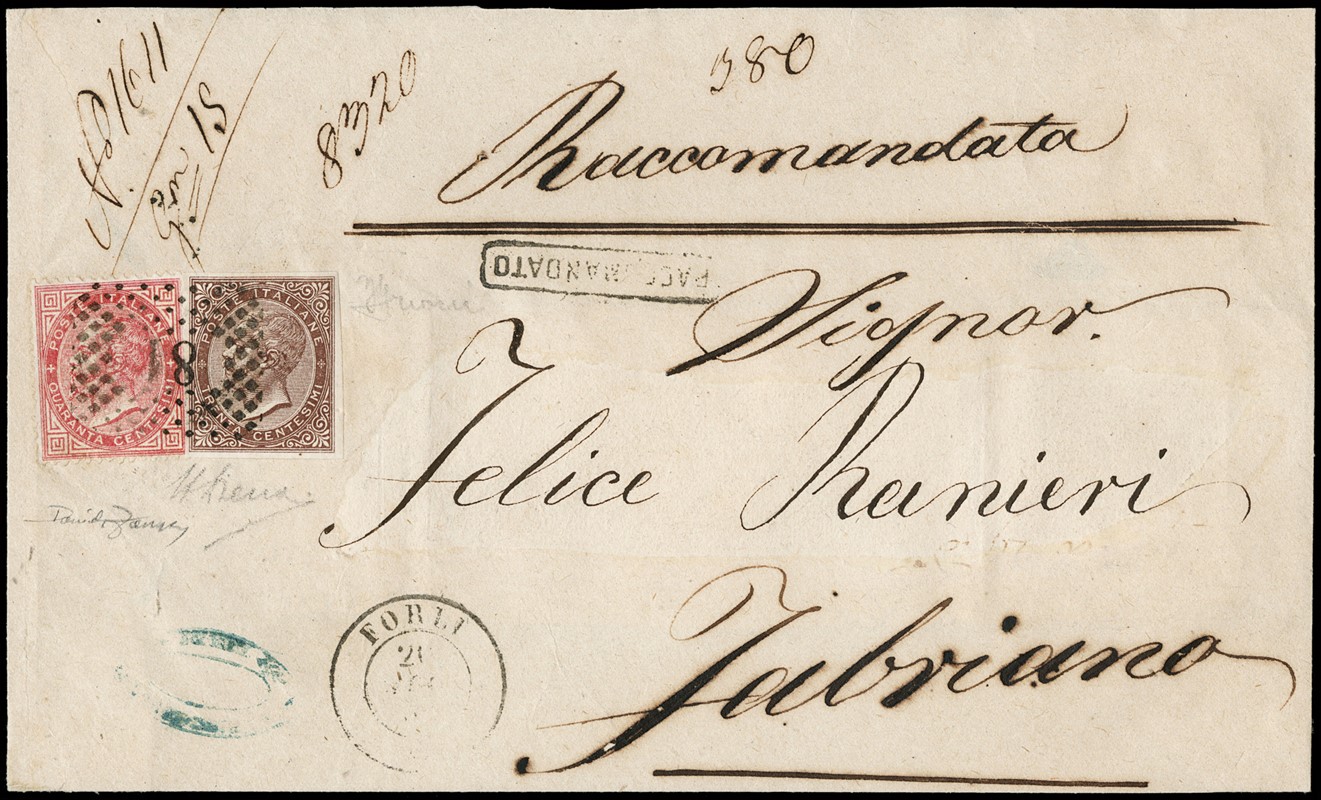 No 1611
Gen 15
8320
380
Raccomandata
RACCOMANDATO
Signor.
Felice Ranieri
Fabriano
POSTE ITALIANE
QUARANTA CENTESIMI
POSTE ITALIANE
TRENTA CENTESIMI
8
FORLI
20